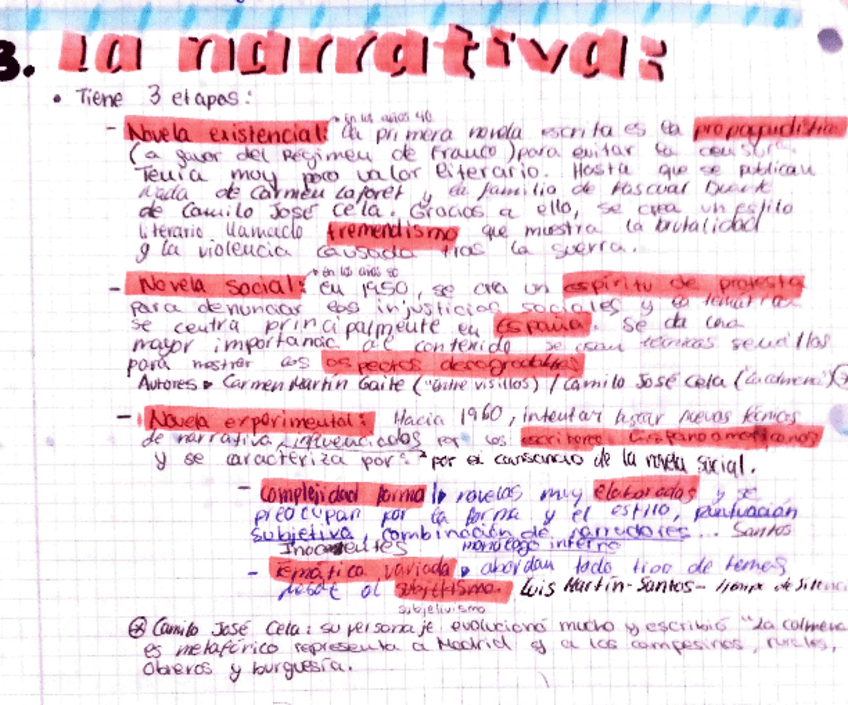 3. La narrativa:
• Tiene 3 etapas:
→ en los años 40
- Novela existencial: la primera novela escrita es la propagandística
(a favor del Régimen de Franco) para evitar la censura.
Tenía muy poco valor literario. Hasta que se publican
Nada de Carmen Laforet y la familia de Pascual Duarte
de Camilo José Cela. Gracias a ello, se crea un estilo
literario llamado tremendismo que muestra la brutalidad
y la violencia causada tras la guerra.
→ en los años 50
- Novela social: en 1950, se crea un espíritu de protesta
para denunciar las injusticias sociales y la temática
se centra principalmente en España. Se da una
mayor importancia al contenido se usan técnicas sencillas
para mostrar los aspectos desagradables
Autores → Carmen Martín Gaite ("Entre visillos) / Camilo José Cela (La colmena")
- Novela experimental: Hacia 1960, intentar usar nuevas técnicas
de narrativa influenciados por los escritores hispanoamericanos
y se caracteriza por: por el cansancio de la novela social.
- Complejidad formal → novelas muy elaboradas y se
preocupan por la forma y el estilo, puntuación
subjetiva, combinación de narradores... Santos
Inocentes monólogo interno
- temática variada → abordan todo tipo de temas
al subjetivismo. Luis Martín-Santos - tiempo de Silencio
subjetivismo
⊛ Camilo José Cela: su personaje evolucionó mucho y escribió "La colmena
es metafórico representa a Madrid y a los campesinos, rurales,
obreros y burguesía.